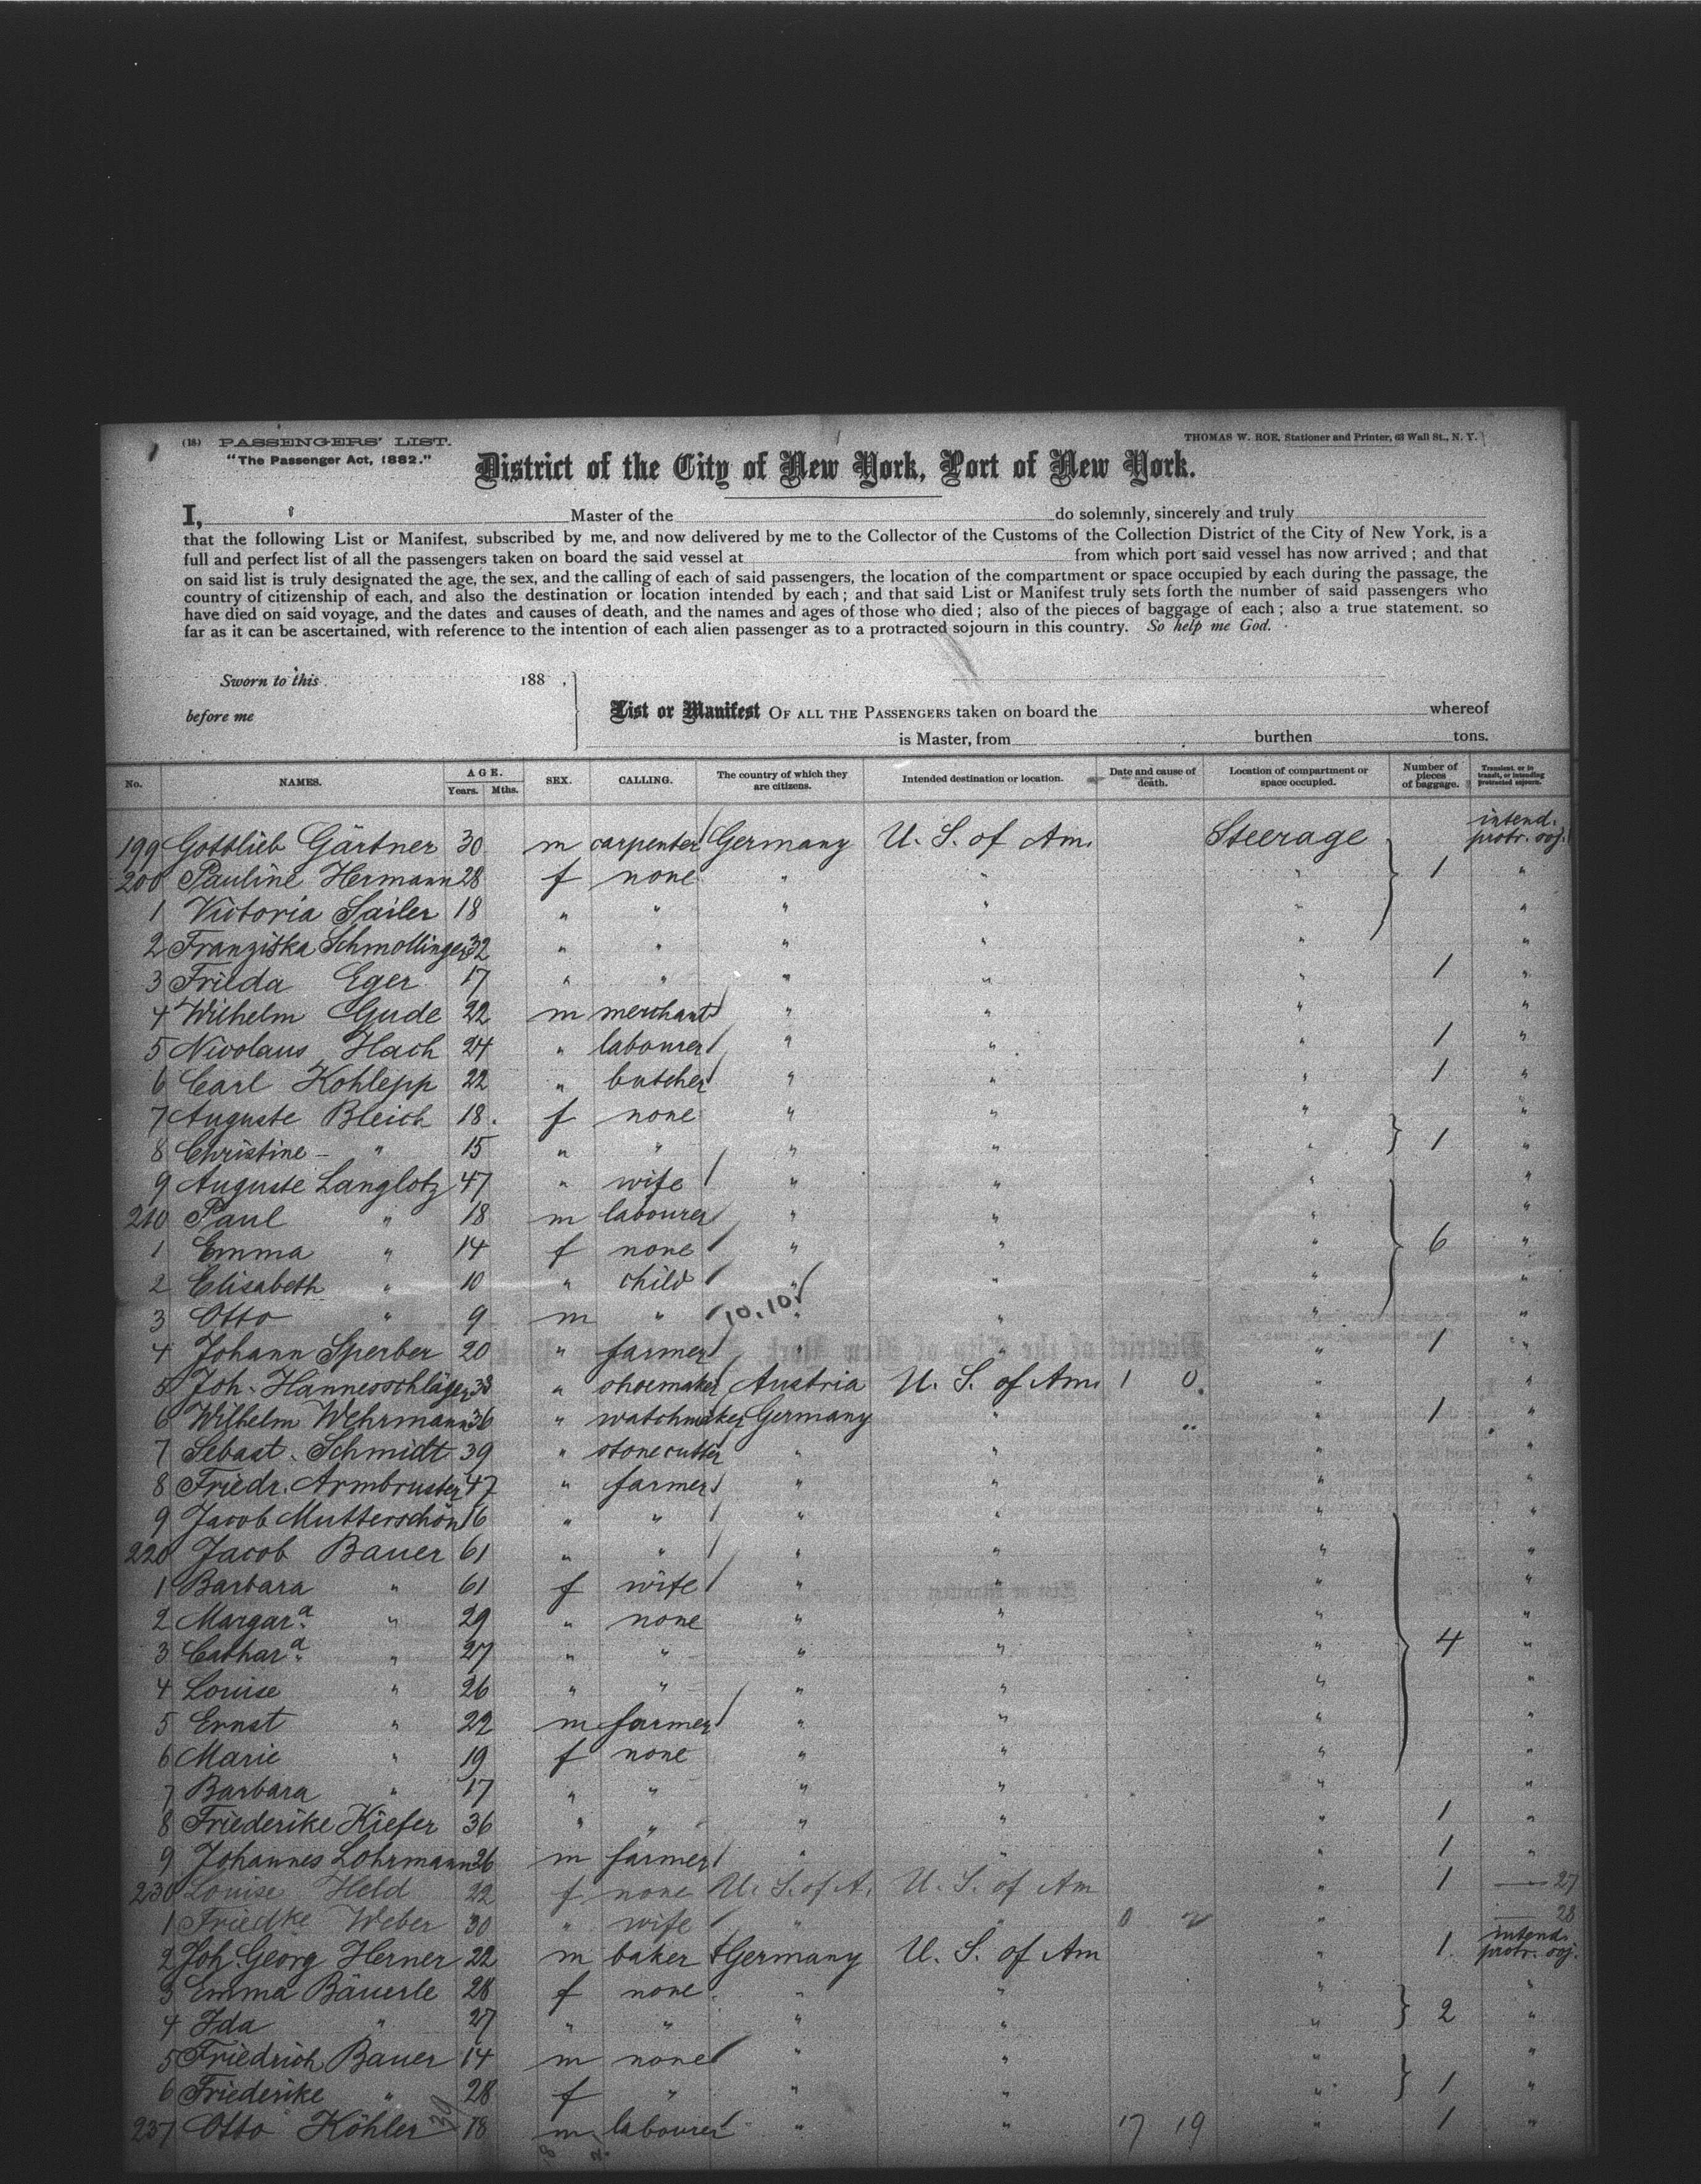 (18) PASSENGERS' LIST.
THOMAS W. ROE, Stationer and Printer, 63 Wall St., N. Y.
"The Passenger Act, 1882."
District of the City of New York, Port of New York.
I, Master of the do solemnly, sincerely and truly
that the following List or Manifest, subscribed by me, and now delivered by me to the Collector of the Customs of the Collection District of the City of New York, is a
full and perfect list of all the passengers taken on board the said vessel at from which port said vessel has now arrived ; and that
on said list is truly designated the age, the sex, and the calling of each of said passengers, the location of the compartment or space occupied by each during the passage, the
country of citizenship of each, and also the destination or location intended by each ; and that said List or Manifest truly sets forth the number of said passengers who
have died on said voyage, and the dates and causes of death, and the names and ages of those who died ; also of the pieces of baggage of each ; also a true statement. so
far as it can be ascertained, with reference to the intention of each alien passenger as to a protracted sojourn in this country. So help me God.
Sworn to this 188 .
before me
List or Manifest OF ALL THE PASSENGERS taken on board the whereof
is Master, from burthen tons.
No. NAMES. AGE. Years. Mths. SEX. CALLING. The country of which they are citizens. Intended destination or location. Date and cause of death. Location of compartment or space occupied. Number of pieces of baggage. Transient, or in transit, or intending protracted sojourn.
199 Gottlieb Gärtner 30 m carpenter Germany U. S. of Am. Steerage intend. protr. soj.
200 Pauline Hermann 28 f none " " " 1 "
1 Victoria Sailer 18 " " " " " "
2 Franziska Schmollinger 32 " " " " " "
3 Frieda Eger 17 " " " " " 1 "
4 Wilhelm Gude 22 m merchant " " " "
5 Nicolaus Hach 24 " labourer " " " 1 "
6 Carl Kohlepp 22 " butcher " " " 1 "
7 Auguste Bleich 18 f none " " " "
8 Christine " 15 " " " " " 1 "
9 Auguste Langlotz 47 " wife " " " "
210 Paul " 18 m labourer " " " "
1 Emma " 14 f none " " " 6 "
2 Elisabeth " 10 " child " " " "
3 Otto " 9 m " 10.10 " " " "
4 Johann Sperber 20 " farmer " " " 1 "
5 Joh. Hannesschläger 38 " shoemaker Austria U. S. of Am. 1 0 " "
6 Wilhelm Wehrmann 36 " watchmaker Germany " " 1 "
7 Sebast. Schmidt 39 " stonecutter " " " "
8 Friedr. Armbruster 47 " farmer " " " "
9 Jacob Mutterschön 16 " " " " " "
220 Jacob Bauer 61 " " " " " "
1 Barbara " 61 f wife " " " "
2 Margar.a " 29 " none " " " "
3 Cathar.a " 27 " " " " " 4 "
4 Louise " 26 " " " " " "
5 Ernst " 22 m farmer " " " "
6 Marie " 19 f none " " " "
7 Barbara " 17 " " " " " "
8 Friederike Kiefer 36 " " " " " 1 "
9 Johannes Lohrmann 26 m farmer " " " 1 "
230 Louise Held 22 f none U. S. of A. U. S. of Am " 1 — 27
1 Friedke Weber 30 " wife " " 0 2 " — 28
2 Joh. Georg Herner 22 m baker Germany U. S. of Am " 1 intend. protr. soj.
3 Emma Bäuerle 28 f none " " " "
4 Ida " 27 " " " " " 2 "
5 Friedrich Bauer 14 m none " " " "
6 Friederike " 28 f " " " " 1 "
237 Otto Köhler 18 m labourer " " 17 19 " 1 "